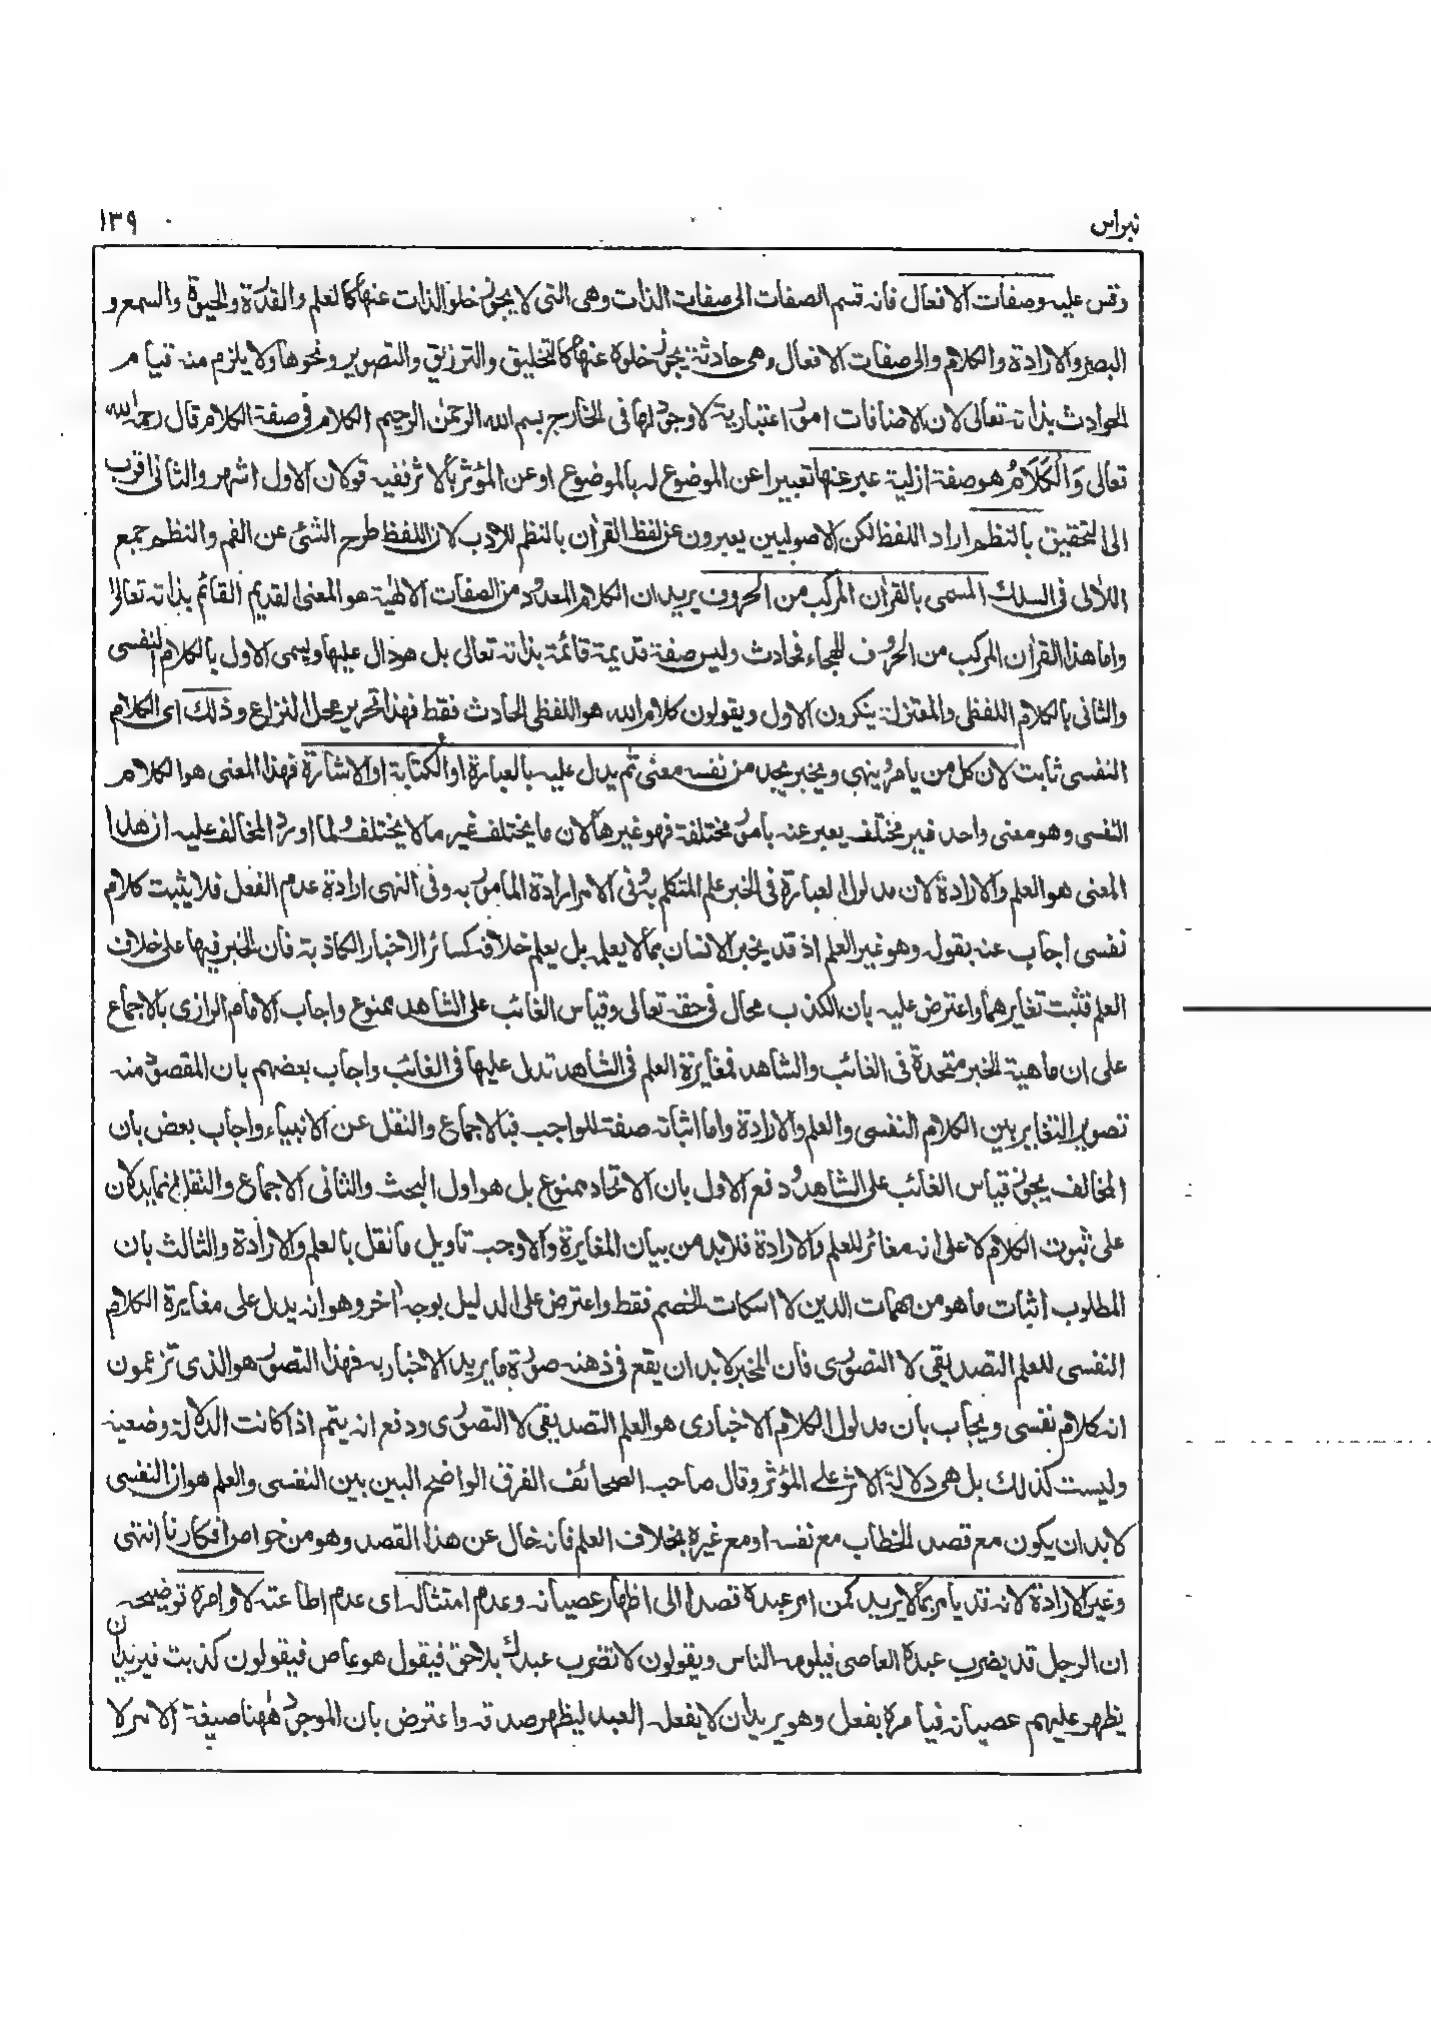 نبراس ١٣٩
وقس عليه وصفات الافعال فانه قسم الصفات الى صفات الذات وهى التى لا يجوز خلو الذات عنها كالعلم والقدرة والحيوة والسمع و
البصر والارادة والكلام والى صفات الافعال وهى حادثة يجوز خلوه عنها كالتخليق والترزيق والتصوير ونحوها ولا يلزم منه قيام
الحوادث بذاته تعالى لان الاضافات امور اعتبارية لا وجود لها فى الخارج بسم الله الرحمن الرحيم الكلام فى صفة الكلام قال رحمه الله
تعالى وَالْكَلَامُ هو صفة ازلية عبر عنها تعبيرا عن الموضوع له بالموضوع او عن المؤثر بالاثر ففيه قولان الاول اشهر والثانى اقرب
الى التحقيق بالنظم اراد اللفظ لكن الاصوليين يعبرون عن لفظ القرأن بالنظم للادب لان اللفظ طرح الشئ عن الفم والنظم جمع
اللألى فى السلك المسمى بالقرأن المركب من الحروف يريد ان الكلام المعدود من الصفات الالهية هو المعنى القديم القائم بذاته تعالى
واما هذا القرأن المركب من الحروف للهجاء فحادث وليس صفة قديمة قائمة بذاته تعالى بل هو دال عليها ويسمى الاول بالكلام النفسى
والثانى بالكلام اللفظى والمعتزلة ينكرون الاول ويقولون كلام الله هو اللفظى الحادث فقط فهذا تحرير محل النزاع وذلك اى الكلام
النفسى ثابت لان كل من يامر وينهى ويخبر يجد من نفسه معنى ثم يدل عليه بالعبارة او الكتابة او الاشارة فهذا المعنى هو الكلام
النفسى وهو معنى واحد غير مختلف يعبر عنه بامور مختلفة فهو غيرها لان ما يختلف غير ما لا يختلف ولما اورد المخالف عليه ان هذا
المعنى هو العلم والارادة لان مدلول العبارة فى الخبر علم المتكلم به وفى الامر ارادة المامور به وفى النهى ارادة عدم الفعل فلا يثبت كلام
نفسى اجاب عنه بقوله وهو غير العلم اذ قد يخبر الانسان بما لا يعلمه بل يعلم خلافه كسائر الاخبار الكاذبة فان الخبر فيها على خلاف
العلم فثبت تغايرهما واعترض عليه بان الكذب محال فى حقه تعالى وقياس الغائب على الشاهد ممنوع واجاب الامام الرازى بالاجماع
على ان ماهية الخبر متحدة فى الغائب والشاهد فمغايرة العلم فى الشاهد تدل عليها فى الغائب واجاب بعضهم بان المقصود منه
تصوير التغاير بين الكلام النفسى والعلم والارادة واما اثباته صفة للواجب فبالاجماع والنقل عن الانبياء واجاب بعض بان
المخالف يجوز قياس الغائب على الشاهد ودفع الاول بان الاتحاد ممنوع بل هو اول البحث والثانى الاجماع والنقل انما يدلان
على ثبوت الكلام لا على انه مغائر للعلم والارادة فلا بد من بيان المغايرة والا وجب تاويل ما نقل بالعلم والارادة والثالث بان
المطلوب اثبات ما هو من مهمات الدين لا اسكات الخصم فقط واعترض على الدليل بوجه أخر وهو انه يدل على مغايرة الكلام
النفسى للعلم التصديقى لا التصورى فان المخبر لا بد ان يقع فى ذهنه صورة ما يريد الاخبار به فهذا التصور هو الذى تزعمون
انه كلام نفسى ويجاب بان مدلول الكلام الاخبارى هو العلم التصديقى لا التصورى ودفع انه يتم اذا كانت الدلالة وضعية
وليست كذلك بل هى دلالة الاثر على المؤثر وقال صاحب الصحائف الفرق الواضح البين بين النفسى والعلم هو ان النفسى
لا بد ان يكون مع قصد الخطاب مع نفسه او مع غيره بخلاف العلم فانه خال عن هذا القصد وهو من خواص افكارنا انتهى
وغير الارادة لانه قد يامر بما لا يريد كمن امر عبده قصدا الى اظهار عصيانه وعدم امتثاله اى عدم اطاعته لاوامره توضيحه
ان الرجل قد يضرب عبده العاصى فيلومه الناس ويقولون لا تضرب عبدك بلا حق فيقول هو عاص فيقولون كذبت فيريد ان
يظهر عليهم عصيانه فيامره بفعل وهو يريد ان لا يفعله العبد ليظهر صدقه واعترض بان الموجود ههنا صيغة الامر لا